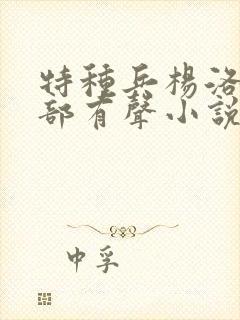 特種兵楊洛
部有聲小說
中孚